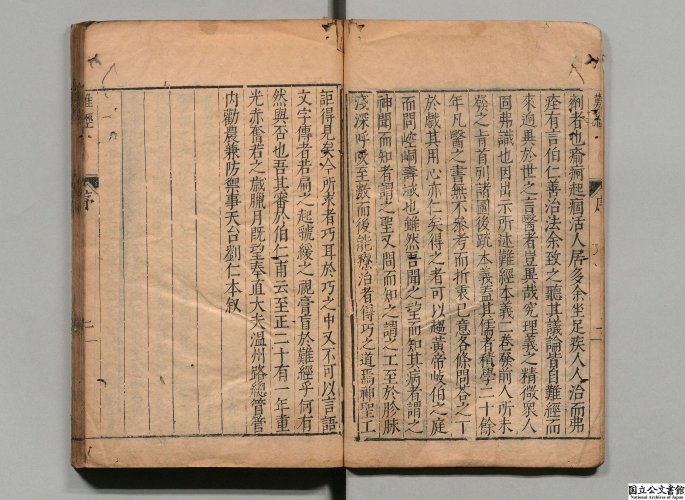 難經
序
劑者也瘉痾起痼活人居多余坐足疾人人治而弗
痊有言伯仁善治法余致之聽其議論皆自難經而
來迥異於世之言醫者豈異哉究理義之精微衆人
固弗識也因出示所述難經本義二卷發前人所未
發之旨首列諸圖後疏本義蓋其儒者積學二十餘
年凡醫之書無不參考而折衷已意各條問荅之下
於戲其用心亦仁矣得之者可以趨黃帝岐伯之庭
而問崆峒壽域也雖然吾聞之望而知其病者謂之
神聞而知者謂之聖又問而知之謂之工至於胗脉
淺深呼吸至數而後能療治者得巧之道焉神聖工
詎得見矣今所求者巧耳於巧之中又不可以言語
文字傳者若扁之起虢緩之視膏肓於難經乎何有
然與否也吾其審於伯仁甫云至正二十有一年重
光赤奮若之歲臘月既望奉直大夫溫州路總管管
內勸農兼防禦事天台劉仁本叙
難經
序
二
国立公文書館
National Archives of Japan